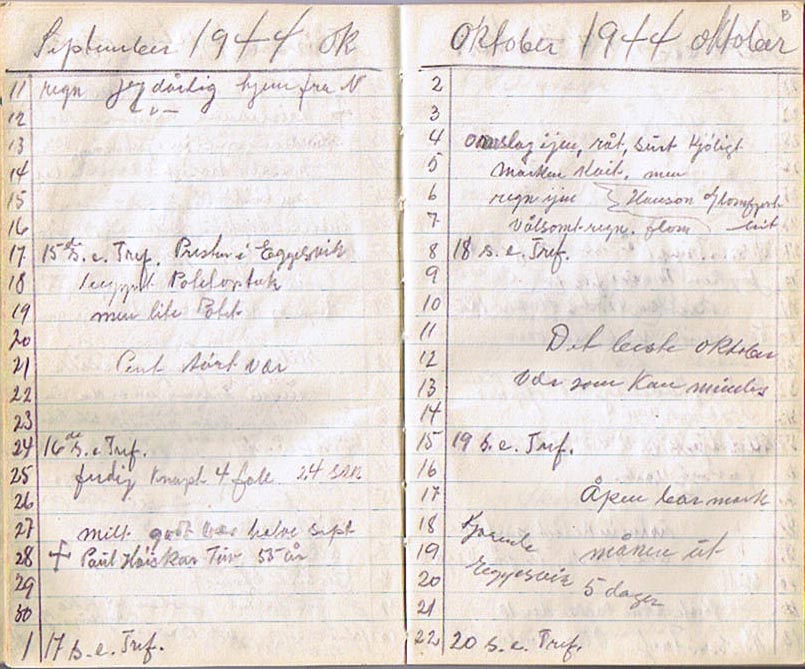 September 1944
11 regn jeg dårlig hjem fra N
12 — " —
13
14
15
16
17 15de s. e. Tref. Presten i Eggesvik
18 Potetoptak
19 men lite Potet
20
21 Pent tørt vær
22
23
24 16de s. e. Tref.
25 ferdig knapt 4 fold 24 sek
26
27 mildt godt vær helve sept
28 + Paul Høiskar Tuv 55 år
29
30
1 17 s. e. Tref.
Oktober 1944 oktober
B
2
3
4 omslag ijen, råt, surt kjøligt
5 marken hvit, men
6 regn ijen Hanson
7 Våtsomt regn. flom
8 18 s. e. Tref.
9
10
11 Det beste oktober
12
13 Vær som kan mindes
14
15 19 s. e. Tref.
16
17 Åpen bar mark
18
19 måneen ut
20 Eggesvik 5 dager
21
22 20 s. e. Tref.